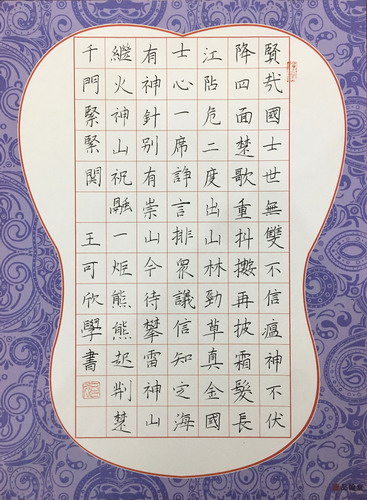 賢哉國士世無雙不信瘟神不伏
降四面楚歌重抖擻再披霜髮長
江阽危二度出山林勁草真金國
士心一席諍言排眾議信知定海
有神針别有崇山今待攀雷神山
繼火神山祝融一炬熊熊起荆楚
千門緊緊関 王可欣學書